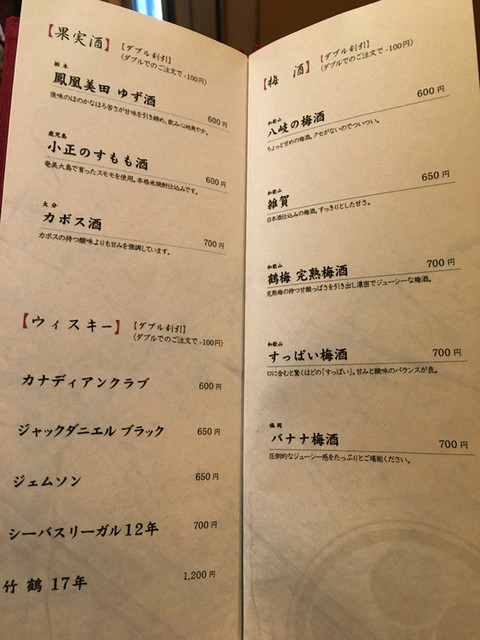 【果実酒】【ダブル割引】
(ダブルでのご注文で-100円)
栃木
鳳凰美田 ゆず酒 600円
後味のほのかなほろ苦さが甘味を引き締め、飲み心地爽やか。
鹿児島
小正のすもも酒 600円
奄美大島で育ったスモモを使用。本格米焼酎仕込みです。
大分
カボス酒 700円
カボスの持つ酸味よりも甘みを強調しています。
【ウィスキー】【ダブル割引】
(ダブルでのご注文で-100円)
カナディアンクラブ 600円
ジャックダニエル ブラック 650円
ジェムソン 650円
シーバスリーガル12年 700円
竹鶴 17年 1,200円
【梅酒】【ダブル割引】
(ダブルでのご注文で-100円)
和歌山
八岐の梅酒 600円
ちょっと甘めの梅酒。クセがないのでついつい。
和歌山
雑賀 650円
日本酒仕込みの梅酒。すっきりとした甘さ。
和歌山
鶴梅 完熟梅酒 700円
完熟梅の持つ甘酸っぱさを引き出し濃密でジューシーな梅酒。
和歌山
すっぱい梅酒 700円
口に含むと驚くほどの「すっぱい」。甘みと酸味のバランスが良。
福岡
バナナ梅酒 700円
圧倒的なジューシー感をたっぷりとご堪能ください。